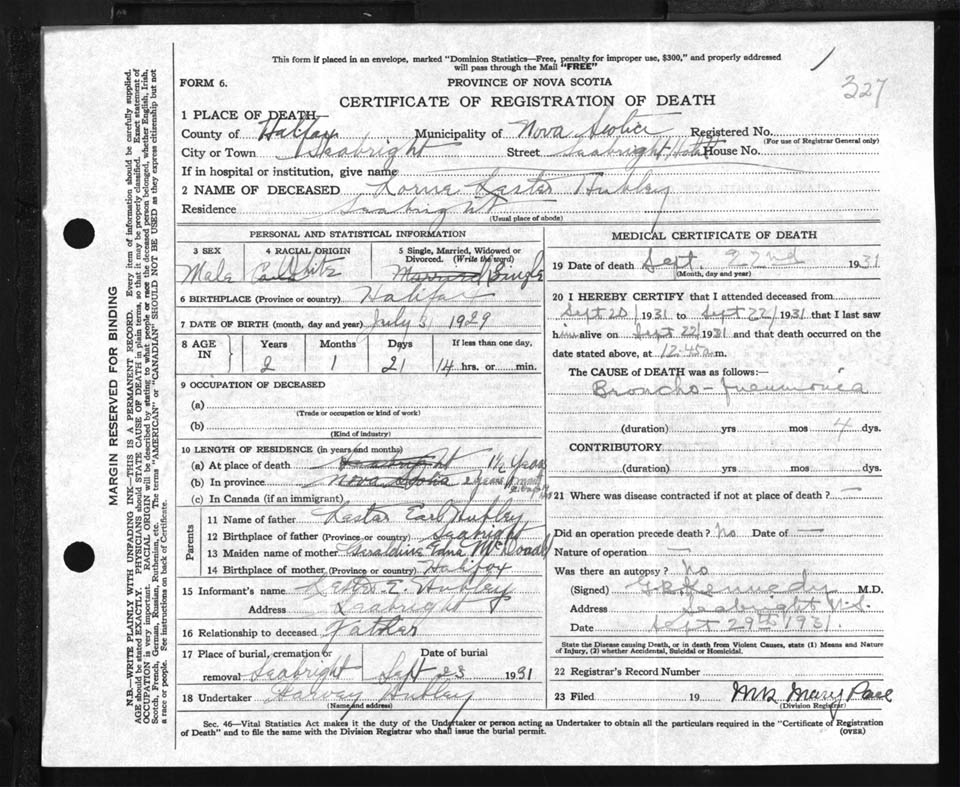 This form if placed in an envelope, marked "Dominion Statistics—Free, penalty for improper use, $300," and properly addressed
will pass through the Mail "FREE"
327
FORM 6.
PROVINCE OF NOVA SCOTIA
CERTIFICATE OF REGISTRATION OF DEATH
1 PLACE OF DEATH,
County of Halifax Municipality of Nova Scotia Registered No.
(For use of Registrar General only)
City or Town Seabright Street Seabright House No.
If in hospital or institution, give name
2 NAME OF DECEASED Lorne Lester Hubley
Residence Seabright
(Usual place of abode)
PERSONAL AND STATISTICAL INFORMATION
3 SEX 4 RACIAL ORIGIN 5 Single, Married, Widowed or
Divorced. (Write the word)
Male White Married Single
6 BIRTHPLACE (Province or country) Halifax
7 DATE OF BIRTH (month, day and year) July 31 1929
8 AGE IN Years Months Days If less than one day,
2 1 21 14 hrs. or min.
9 OCCUPATION OF DECEASED
(a)
(Trade or occupation or kind of work)
(b)
(Kind of industry)
10 LENGTH OF RESIDENCE (in years and months)
(a) At place of death Seabright 1½ Years
(b) In province Nova Scotia 2 years 1 month
(c) In Canada (if an immigrant)
Parents
11 Name of father Lester Earl Hubley
12 Birthplace of father (Province or country) Seabright
13 Maiden name of mother Geraldine Edna McDonald
14 Birthplace of mother (Province or country) Halifax
15 Informant's name Lester E. Hubley
Address Seabright
16 Relationship to deceased Father
17 Place of burial, cremation or Date of burial
removal Seabright Sept 23 1931
18 Undertaker Harvey Hubley
(Name and address)
MEDICAL CERTIFICATE OF DEATH
19 Date of death Sept. 22nd 1931
(Month, day and year)
20 I HEREBY CERTIFY that I attended deceased from
Sept 20/1931 to Sept 22/1931 that I last saw
him alive on Sept 22/1931 and that death occurred on the
date stated above, at 12.45 a m.
The CAUSE of DEATH was as follows:—
Broncho-pneumonia
(duration) yrs mos 4 dys.
CONTRIBUTORY
(duration) yrs mos dys.
21 Where was disease contracted if not at place of death? —
Did an operation precede death? No Date of —
Nature of operation —
Was there an autopsy? No
(Signed) G.B. Kennedy M.D.
Address Seabright N.S.
Date Sept 29th 1931.
State the Disease causing Death, or in death from Violent Causes, state (1) Means and Nature
of Injury, (2) whether Accidental, Suicidal or Homicidal.
22 Registrar's Record Number
23 Filed 19 Mrs Mary Pace
(Division Registrar)
Sec. 46—Vital Statistics Act makes it the duty of the Undertaker or person acting as Undertaker to obtain all the particulars required in the "Certificate of Registration
of Death" and to file the same with the Division Registrar who shall issue the burial permit.
(OVER)
MARGIN RESERVED FOR BINDING
N.B.—WRITE PLAINLY WITH UNFADING INK—THIS IS A PERMANENT RECORD. Every item of information should be carefully supplied.
AGE should be stated EXACTLY. PHYSICIANS should STATE CAUSE OF DEATH in plain terms, so that it may be properly classified. Exact statement of
OCCUPATION is very important. RACIAL ORIGIN will be described by stating to what people or race the deceased person belonged, whether English, Irish,
Scotch, French, German, Russian, Ruthenian, etc. The terms "AMERICAN" or "CANADIAN" SHOULD NOT BE USED as they express citizenship but not
a race or people. See instructions on back of Certificate.